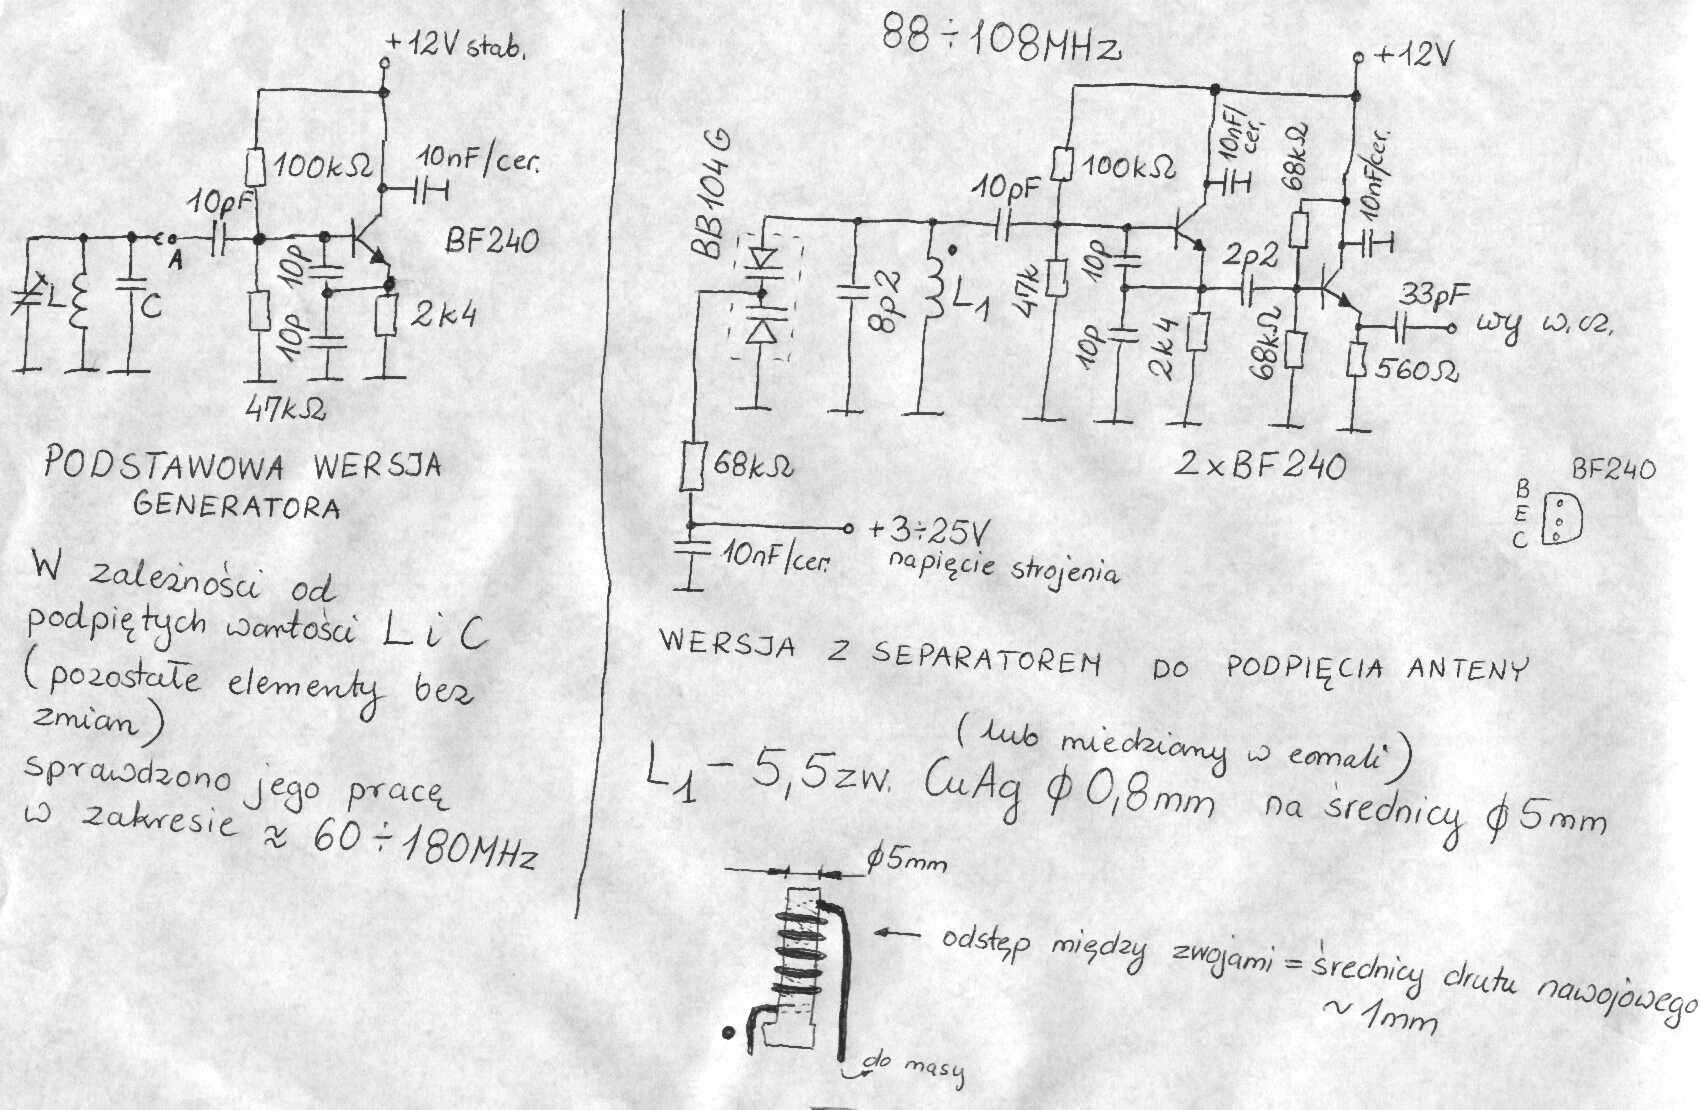 +12V stab.
100kΩ
10nF/cer.
10pF
BF240
A
L
C
10p
10p
2k4
47kΩ
PODSTAWOWA WERSJA
GENERATORA
W zależności od
podpiętych wartości L i C
(pozostałe elementy bez
zmian)
sprawdzono jego pracę
w zakresie ≈ 60÷180MHz
88÷108MHz
+12V
BB104G
10pF
100kΩ
10nF/
cer.
68kΩ
10nF/cer.
8p2
L1
47k
10p
10p
2k4
2p2
68kΩ
33pF
wy w.cz.
560Ω
2xBF240
68kΩ
+3÷25V
napięcie strojenia
10nF/cer.
BF240
B
E
C
WERSJA Z SEPARATOREM DO PODPIĘCIA ANTENY
(lub miedziany w emali)
L1 - 5,5zw. CuAg ϕ 0,8mm na średnicy ϕ 5mm
ϕ5mm
odstęp między zwojami = średnicy drutu nawojowego
~ 1mm
do masy